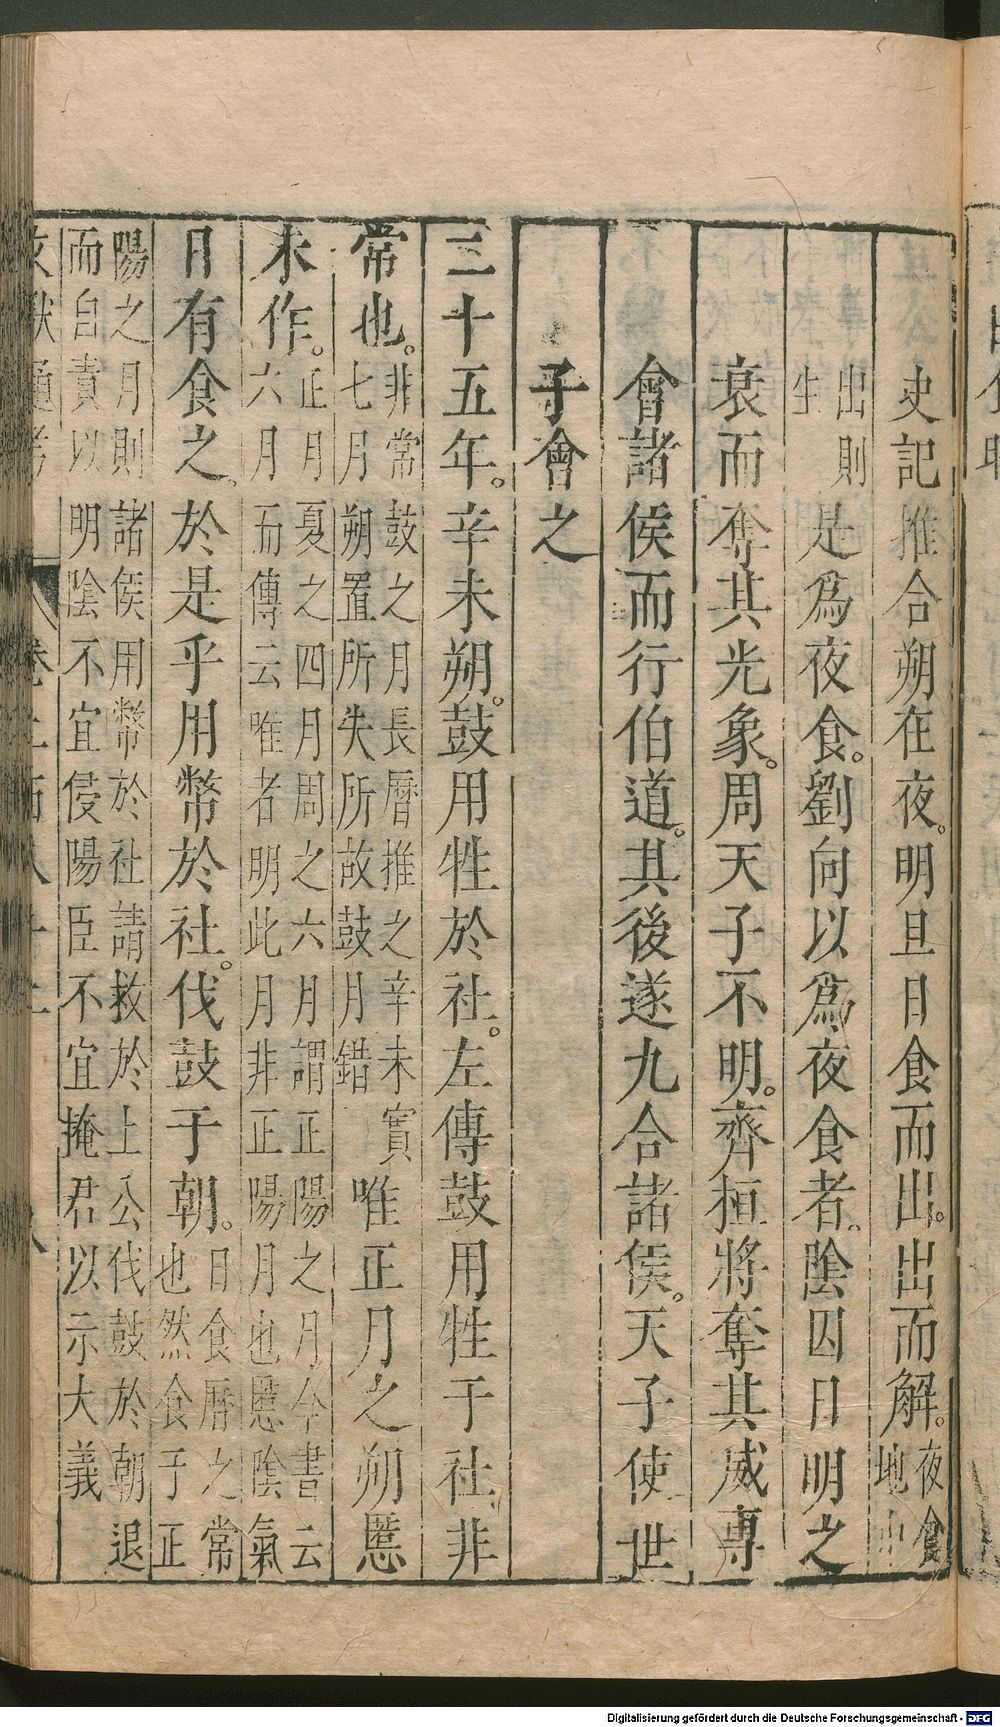 史記推合朔在夜。明旦日食而出。出而解。夜食地中
出則生是爲夜食。劉向以爲夜食者。陰因日明之
衰而奪其光象。周天子不明。齊桓將奪其威專
會諸侯而行伯道。其後遂九合諸侯。天子使世
子會之
三十五年。辛未朔。鼓用牲於社。左傳鼓用牲于社非
常也。非常鼓之月長曆推之辛未實七月朔置所失所故鼓月錯唯正月之朔慝
未作。正月夏之四月周之六月謂正陽之月今書云六月而傳云唯者明此月非正陽月也慝陰氣
日有食之。於是乎用幣於社。伐鼓于朝。日食曆之常也然食于正
陽之月則諸侯用幣於社請救於上公伐鼓於朝退
而自責以明陰不宜侵陽臣不宜掩君以示大義
文獻通考 卷二百八十二
Digitalisierung gefördert durch die Deutsche Forschungsgemeinschaft - DFG